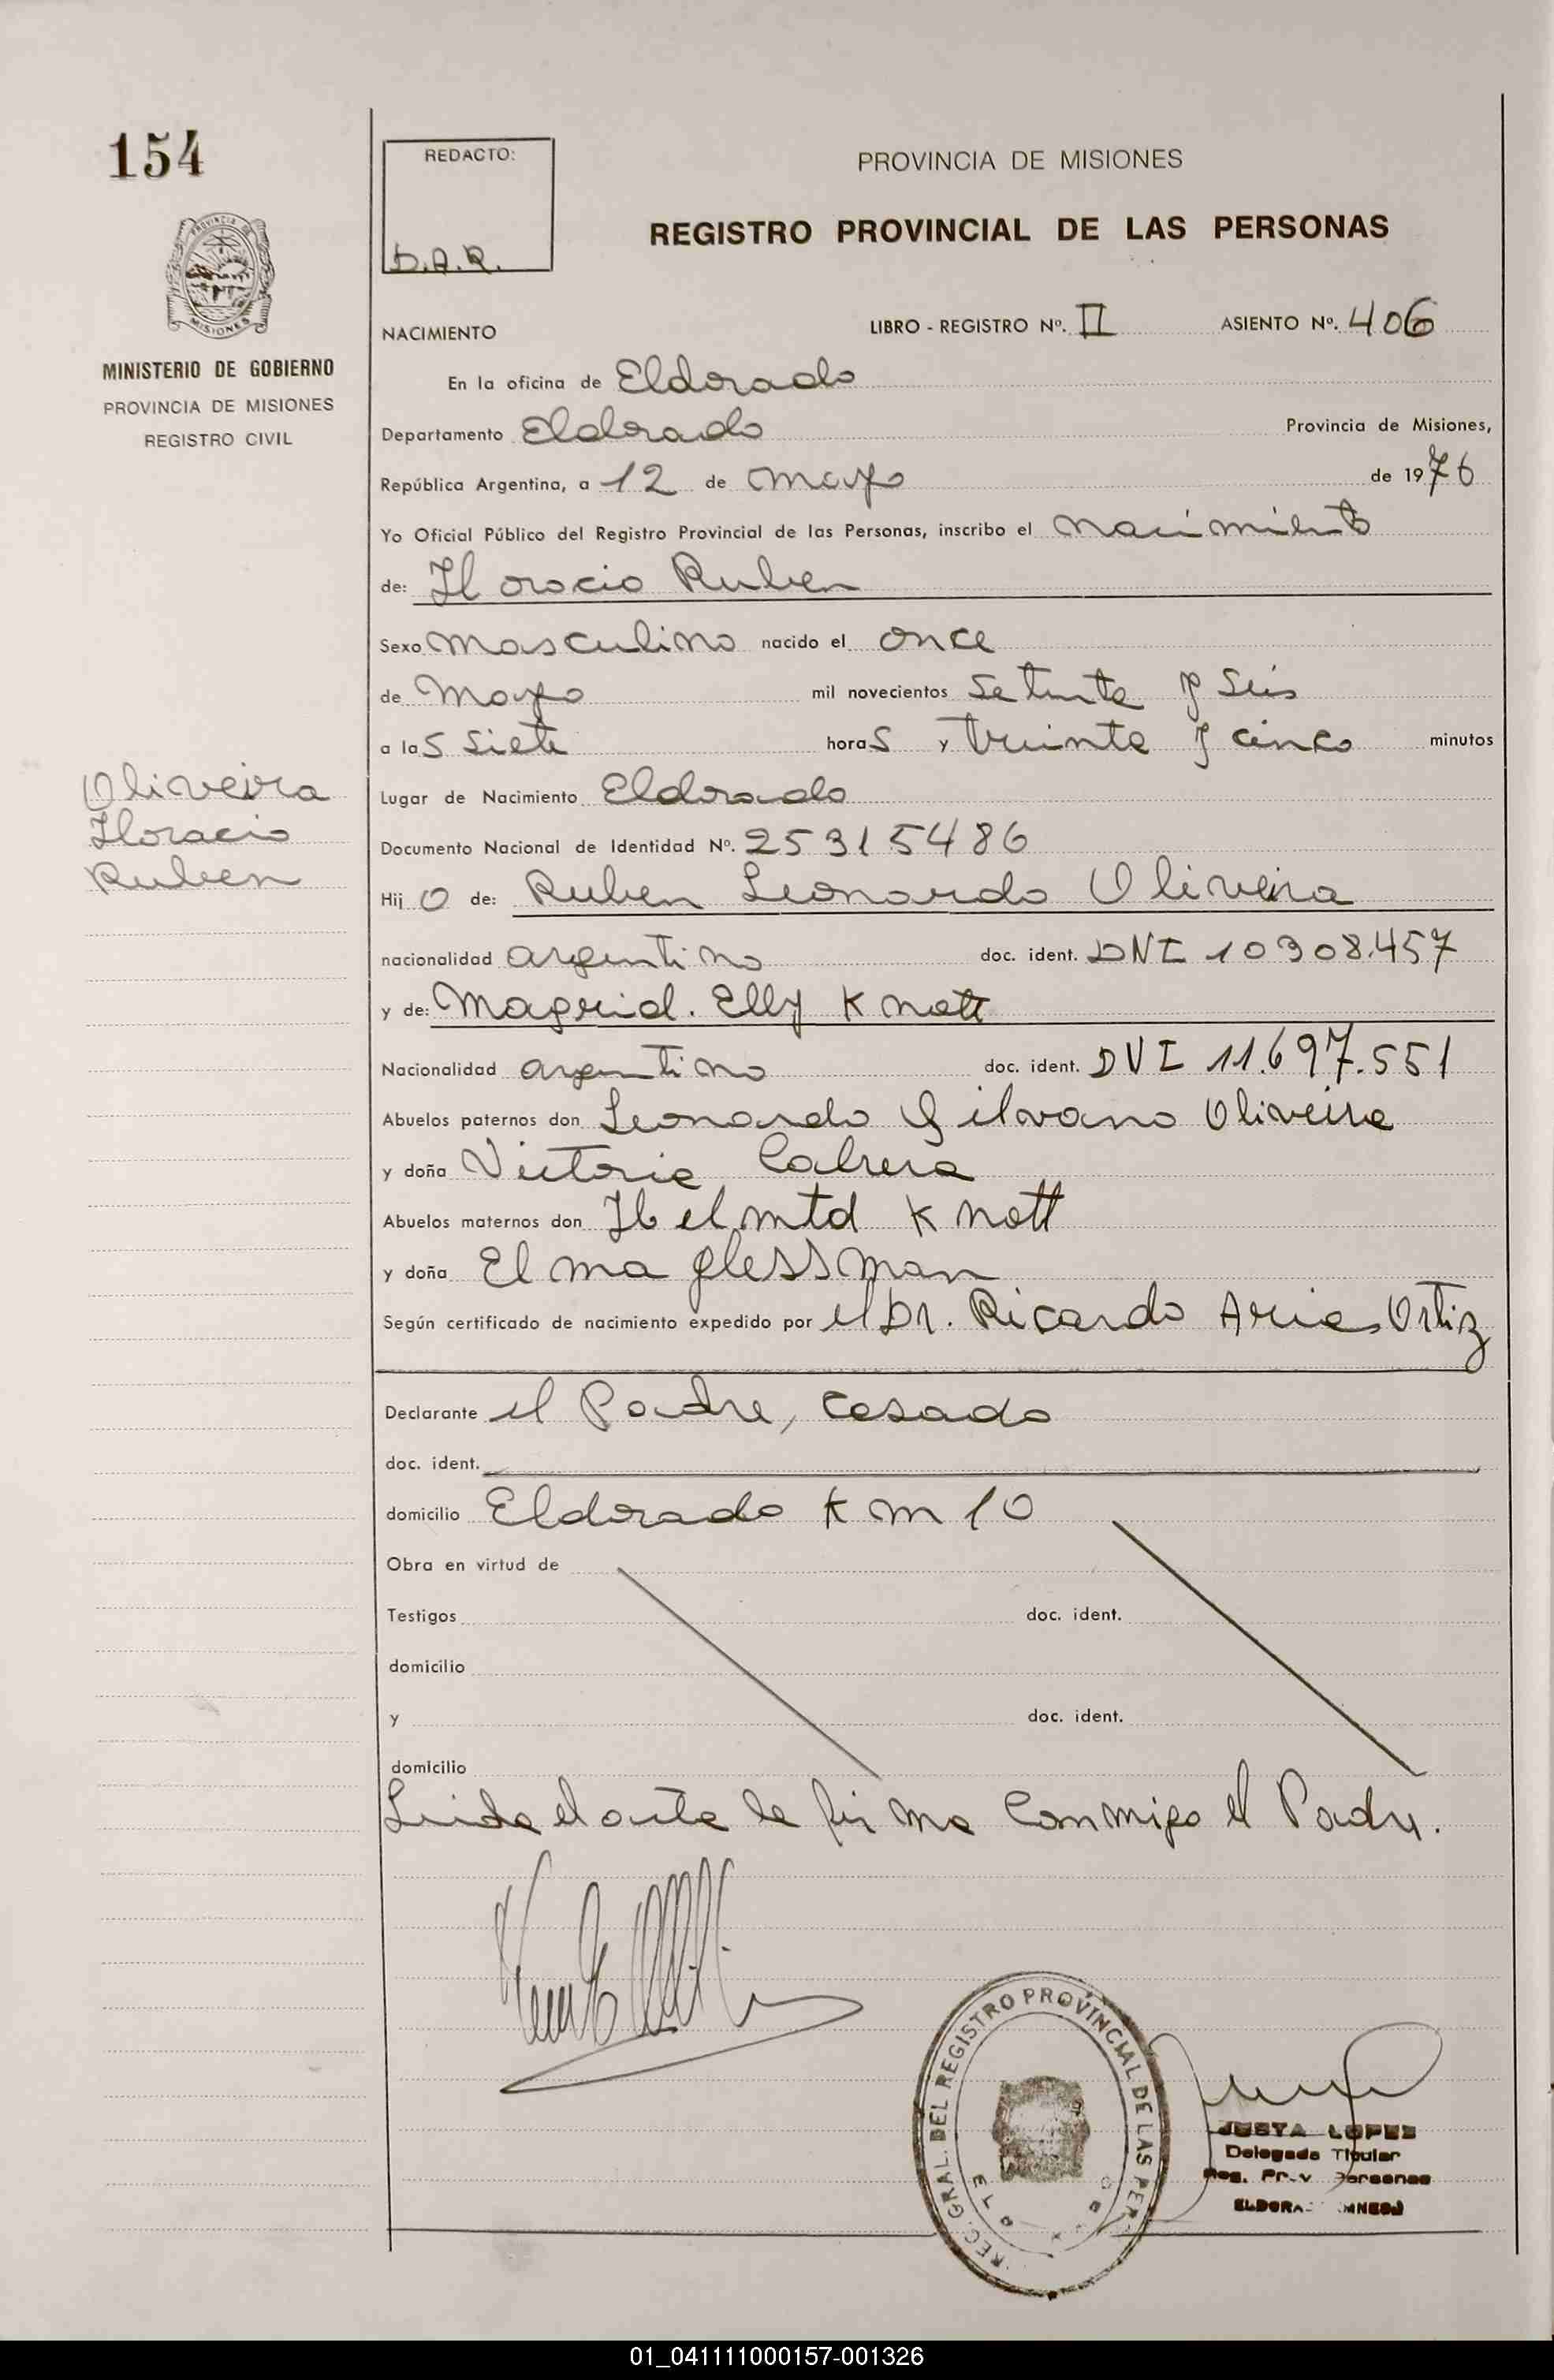 154
REDACTO:
D.A.R.
PROVINCIA DE MISIONES
REGISTRO PROVINCIAL DE LAS PERSONAS
PROVINCIA DE
MISIONES
MINISTERIO DE GOBIERNO
PROVINCIA DE MISIONES
REGISTRO CIVIL
NACIMIENTO LIBRO - REGISTRO Nº. II ASIENTO Nº. 406
En la oficina de Eldorado
Departamento Eldorado Provincia de Misiones,
República Argentina, a 12 de mayo de 1976
Yo Oficial Público del Registro Provincial de las Personas, inscribo el nacimiento
de: Horacio Ruben
Sexo masculino nacido el once
de Mayo mil novecientos setenta y seis
a las siete horas y treinta y cinco minutos
Oliveira
Horacio
Ruben
Lugar de Nacimiento Eldorado
Documento Nacional de Identidad Nº. 25315486
Hijo de: Ruben Leonardo Oliveira
nacionalidad argentino doc. ident. DNI 10308.457
y de: Magrid. Elly Knott
Nacionalidad argentino doc. ident. DNI 11.697.551
Abuelos paternos don Leonardo Gilvano Oliveira
y doña Victoria Cabrera
Abuelos maternos don Helmtd Knott
y doña Elma glessman
Según certificado de nacimiento expedido por el Dr. Ricardo Arias Ortiz
Declarante el Padre, casado
doc. ident.
domicilio Eldorado Km 10
Obra en virtud de
Testigos doc. ident.
domicilio
y doc. ident.
domicilio
Leida el acta la firma conmigo el Padre.
REC. GRAL. DEL REGISTRO PROVINCIAL DE LAS PER
JUSTA LOPEZ
Delegada Titular
Reg. Prov Personas
01_041111000157-001326